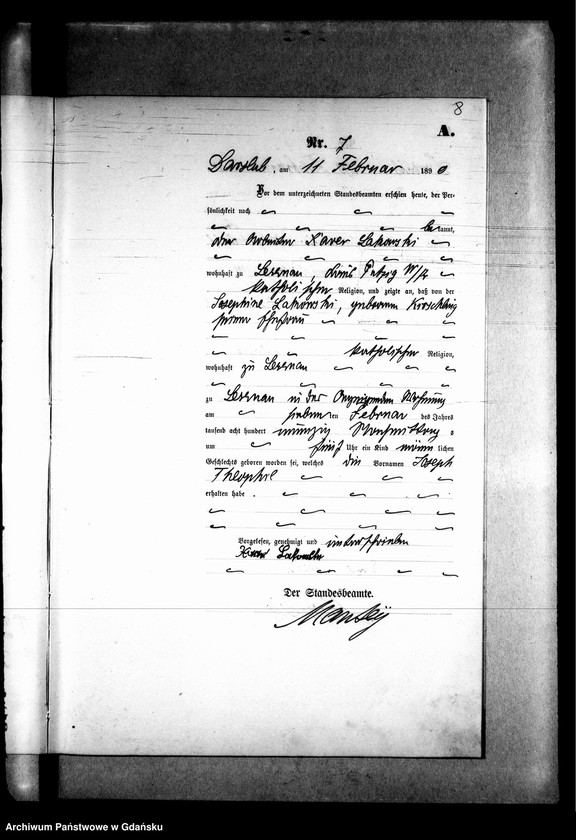 8
A.
Nr. 7
Darslub, am 11 Februar 1890
Vor dem unterzeichneten Standesbeamten erschien heute, der Per-
sönlichkeit nach
bekannt,
der Arbeiter Xaver Lakowski
wohnhaft zu Lessnau, Kreis Putzig W/Pr
katholischer Religion, und zeigte an, daß von der
Josephine Lakowski, geborenen Kirschling
seiner Ehefrau
katholischer Religion,
wohnhaft zu Lessnau
zu Lessnau in der Wohnung
am siebenten Februar des Jahres
tausend acht hundert neunzig Nachmittags
um fünf Uhr ein Kind männlichen
Geschlechts geboren worden sei, welches die Vornamen Joseph
Theophil
erhalten habe.
Vorgelesen, genehmigt und unterschrieben
Xaver
Der Standesbeamte.
Archiwum Państwowe w Gdańsku